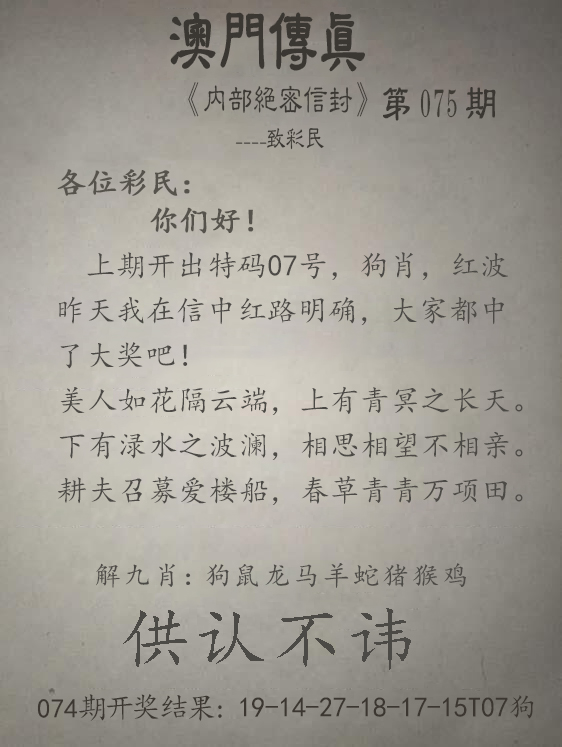 澳門傳眞
《内部絕密信封》第075期
----致彩民
各位彩民：
你们好！
上期开出特码07号，狗肖，红波
昨天我在信中红路明确，大家都中
了大奖吧！
美人如花隔云端，上有青冥之长天。
下有渌水之波澜，相思相望不相亲。
耕夫召募爱楼船，春草青青万项田。
解九肖：狗鼠龙马羊蛇猪猴鸡
供认不讳
074期开奖结果：19-14-27-18-17-15T07狗